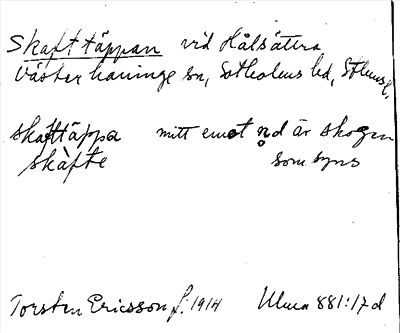 Skafttäppan vid Hålsätra
Västerhaninge sn, Sotholms hd, Sthms l.
skafttäppa mitt emot nd är skogen
skàfte som syns
Torsten Ericsson f. 1914 Ulma 881:17 d